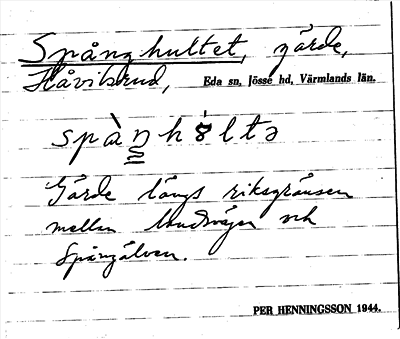 Spånghultet, gärde,
Håvilsrud, Eda sn, Jösse hd, Värmlands län.
spàn hòltə
Gärde längs riksgränsen
mellan landsvägen och
Spångälven.
PER HENNINGSSON 1944.